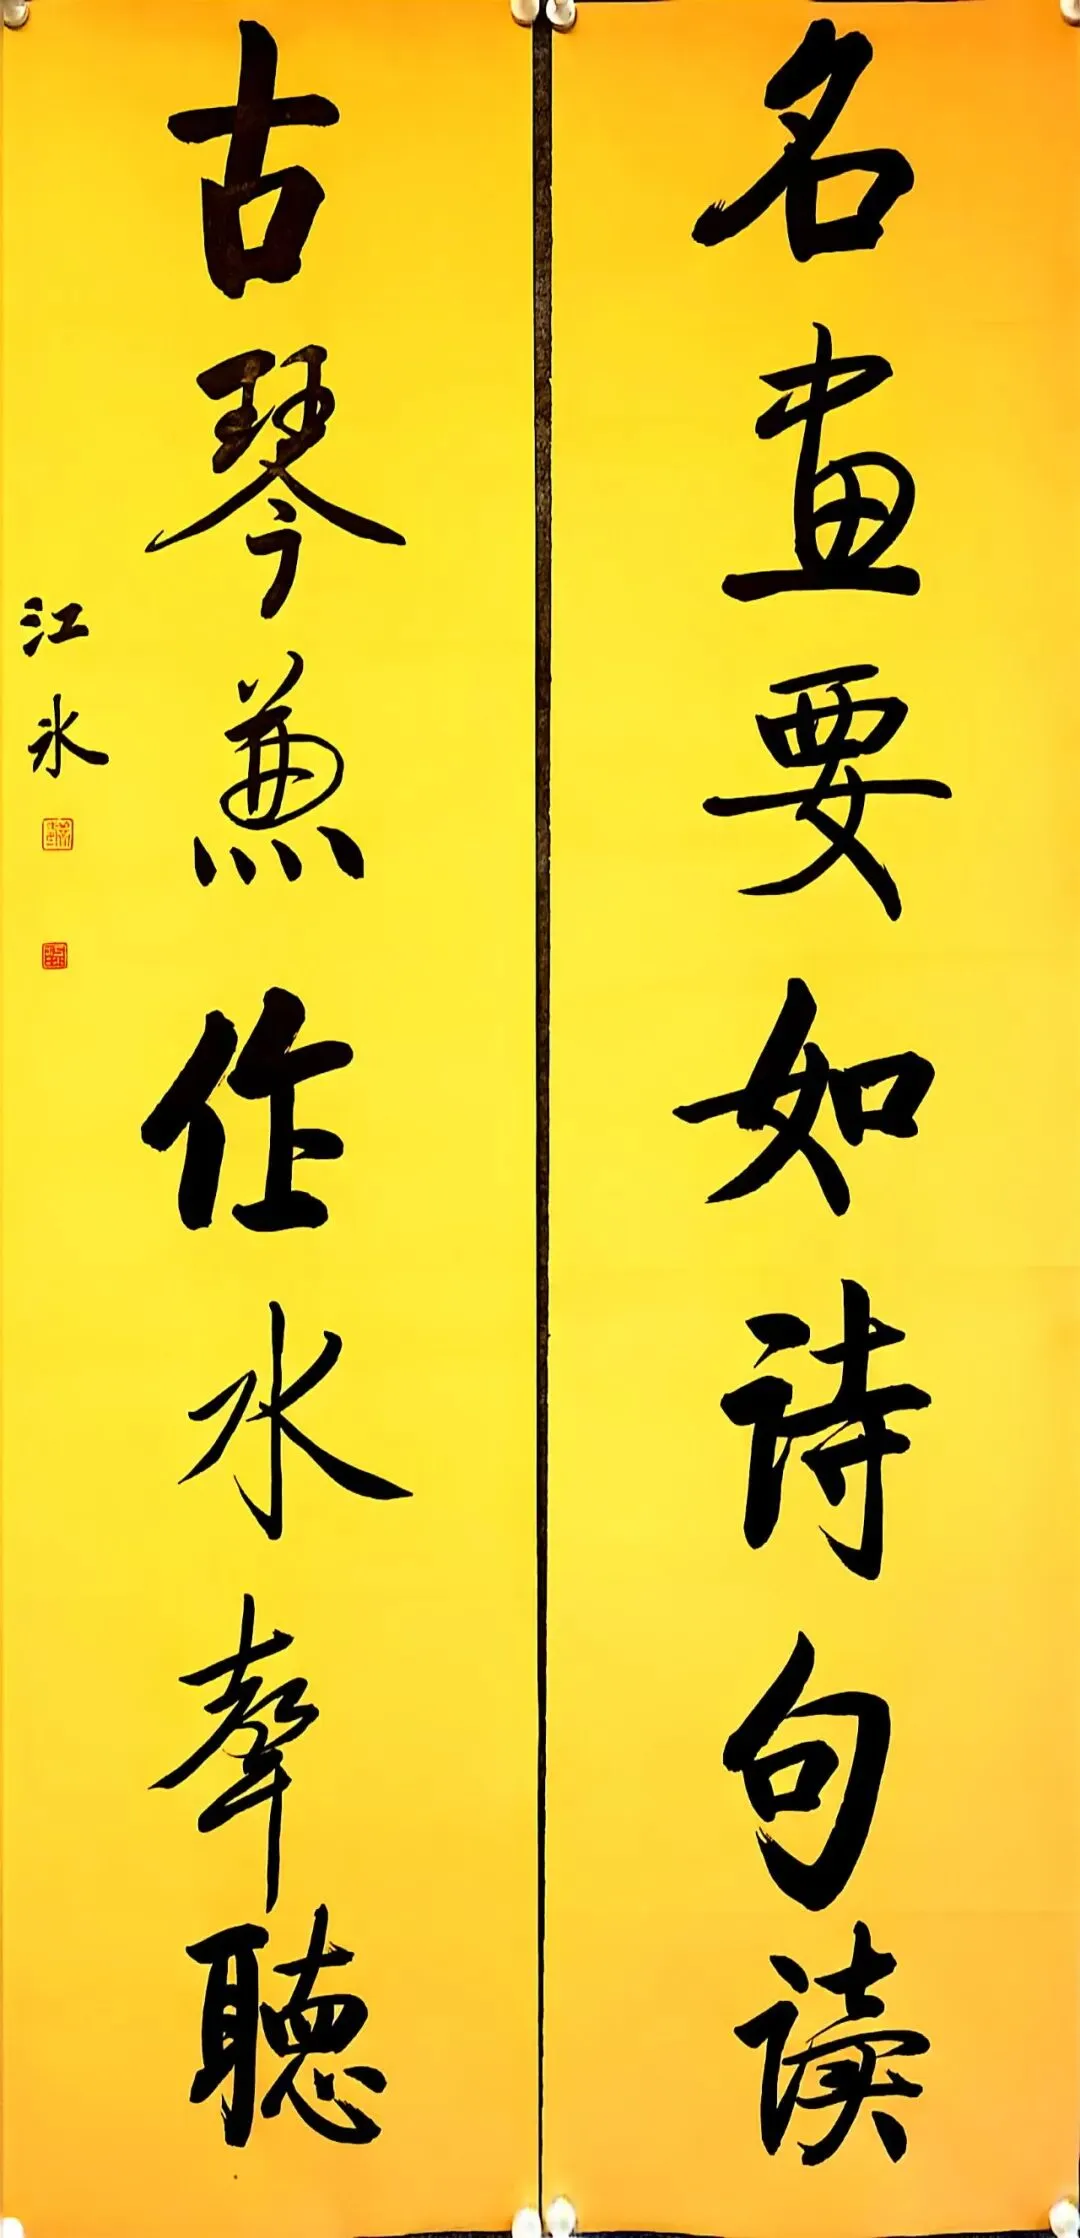 名画要如诗句读
古琴兼作水聲聽
江冰